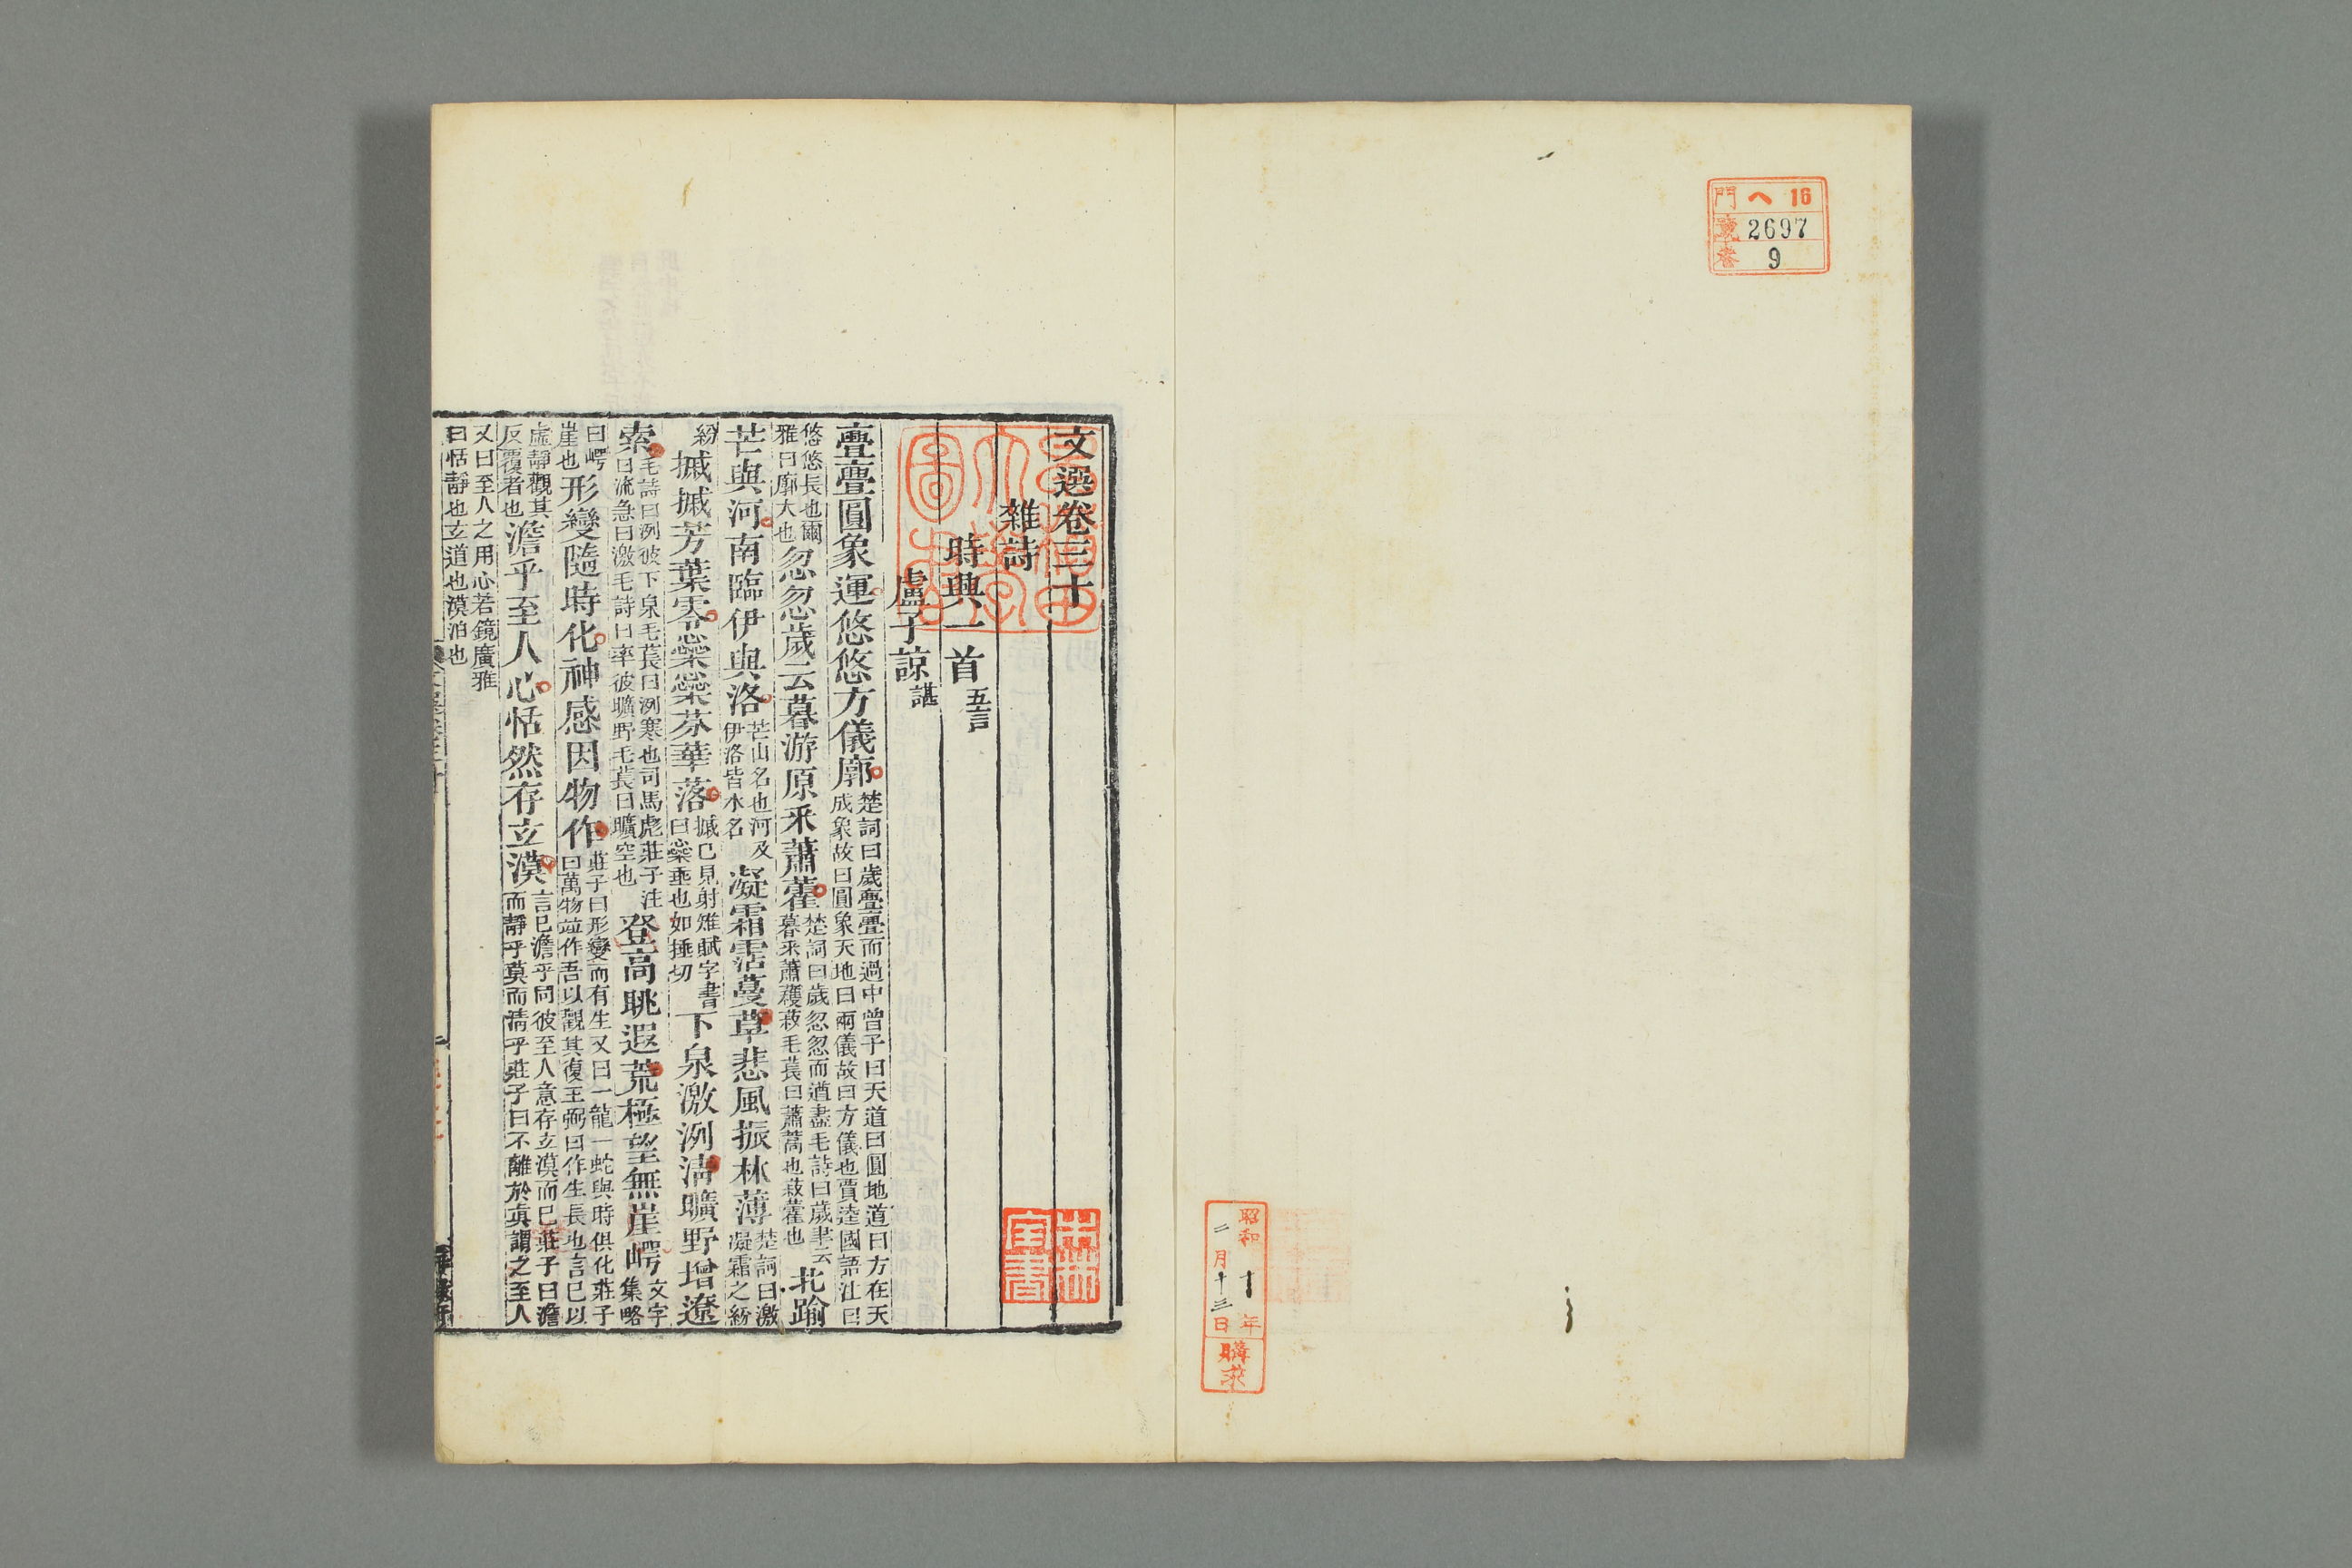 門 ヘ 16
號 2697
卷 9
昭和十年
二月十三日
購求
文選卷三十
雜詩
時興一首 五言
盧子諒 諶
亹亹圓象運悠悠方儀廓 楚詞曰歲亹亹而過中曾子曰天道曰圓地道曰方在天
成象故曰圓象天地曰兩儀故曰方儀也賈逵國語注曰
悠悠長也爾
雅曰廓大也 忽忽歲云暮游原采蕭藿 楚詞曰歲忽忽而遒盡毛詩曰歲聿云
暮采蕭穫菽毛萇曰蕭蒿也菽藿也 北踰
芒與河南臨伊與洛 芒山名也河及
伊洛皆水名 凝霜霑蔓草悲風振林薄 楚詞曰漱
凝霜之紛
紛 摵摵芳葉零橤橤芬華落 摵已見射雉賦字書
曰橤垂也如捶切 下泉激洌清曠野增遼
索 毛詩曰洌彼下泉毛萇曰洌寒也司馬彪莊子注
曰流急曰激毛詩曰率彼曠野毛萇曰曠空也 登高眺遐荒極望無崖崿 文字
集略
曰崿
崖也 形變隨時化神感因物作 莊子曰形變而有生又曰一龍一蛇與時俱化莊子
曰萬物並作吾以觀其復王弼曰作生長也言已以
虛靜觀其
反覆者也 澹乎至人心恬然存玄漠 言已澹乎同彼至人意存玄漠而已莊子曰澹
而靜乎莫而清乎莊子曰不離於真謂之至人
又曰至人之用心若鏡廣雅
曰恬靜也玄道也漠泊也